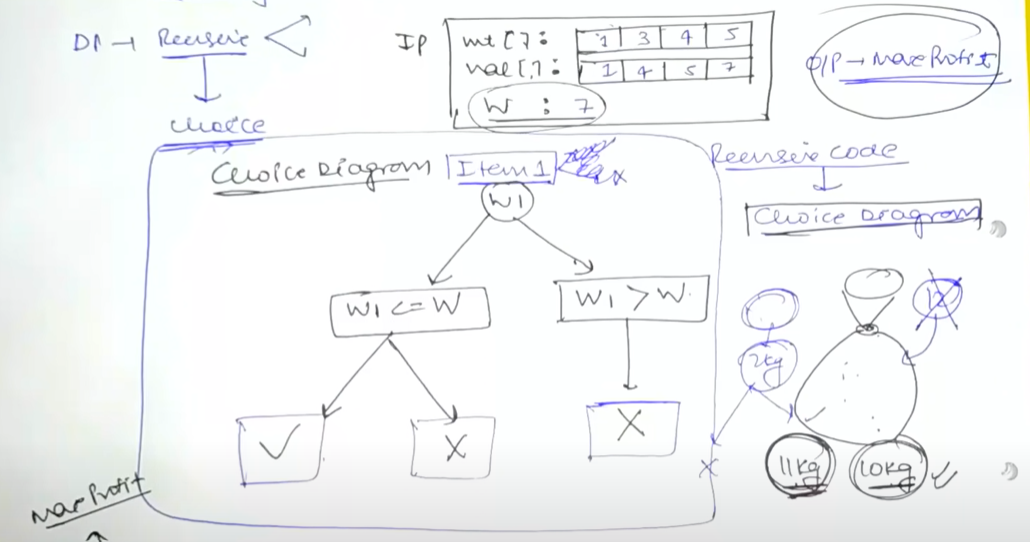 DP → Recursive
choice
IP
wt[]: 1 3 4 5
val[]: 1 4 5 7
W : 7
O/P → Max Profit
Choice Diagram Item 1 x
W1
W1 <= W
W1 > W
✓
X
X
Recursive code
Choice Diagram
2kg
X
11kg
10kg
Max Profit